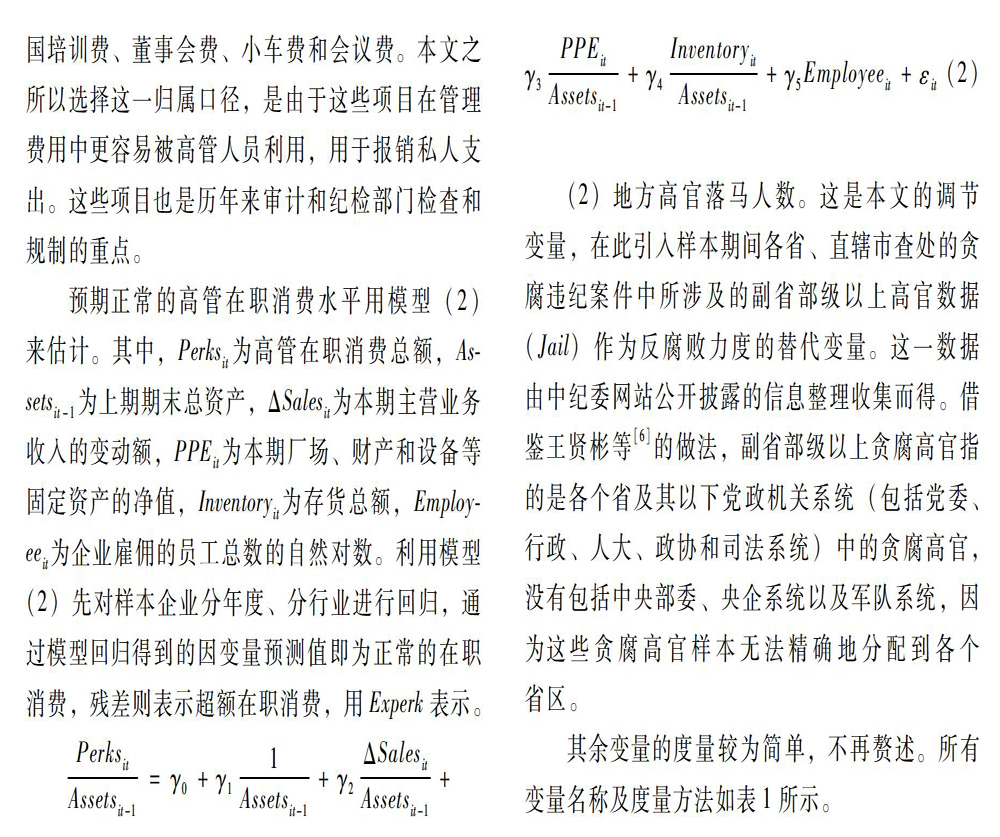 国培训费、董事会费、小车费和会议费。本文之
所以选择这一归属口径，是由于这些项目在管理
费用中更容易被高管人员利用，用于报销私人支
出。这些项目也是历年来审计和纪检部门检查和
规制的重点。
预期正常的高管在职消费水平用模型（2）
来估计。其中，Perks_{it}为高管在职消费总额，As-
sets_{it-1}为上期期末总资产，ΔSales_{it}为本期主营业务
收入的变动额，PPE_{it}为本期厂场、财产和设备等
固定资产的净值，Inventory_{it}为存货总额，Employ-
ee_{it}为企业雇佣的员工总数的自然对数。利用模型
（2）先对样本企业分年度、分行业进行回归，通
过模型回归得到的因变量预测值即为正常的在职
消费，残差则表示超额在职消费，用 Experk 表示。
\frac{Perks_{it}}{Assets_{it-1}} = γ_0 + γ_1 \frac{1}{Assets_{it-1}} + γ_2 \frac{ΔSales_{it}}{Assets_{it-1}} +
γ_3 \frac{PPE_{it}}{Assets_{it-1}} + γ_4 \frac{Inventory_{it}}{Assets_{it-1}} + γ_5 Employee_{it} + ε_{it} (2)
（2）地方高官落马人数。这是本文的调节
变量，在此引入样本期间各省、直辖市查处的贪
腐违纪案件中所涉及的副省部级以上高官数据
（Jail）作为反腐败力度的替代变量。这一数据
由中纪委网站公开披露的信息整理收集而得。借
鉴王贤彬等[6]的做法，副省部级以上贪腐高官指
的是各个省及其以下党政机关系统（包括党委、
行政、人大、政协和司法系统）中的贪腐高官，
没有包括中央部委、央企系统以及军队系统，因
为这些贪腐高官样本无法精确地分配到各个
省区。
其余变量的度量较为简单，不再赘述。所有
变量名称及度量方法如表1所示。